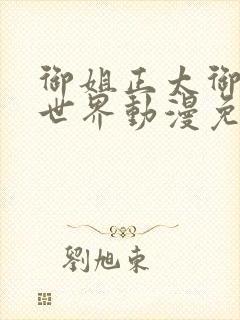 御姐正太御
世界動漫免
劉旭東